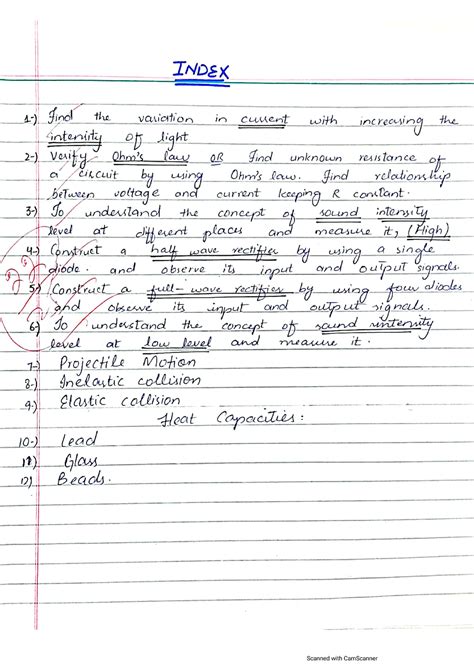 INDEX
1-) Find the variation in current with increasing the
intensity of light
2-) Verify Ohm's law OR Find unknown resistance of
a circuit by using Ohm's law. Find relationship
between voltage and current keeping R constant.
3-) To understand the concept of sound intensity
level at different places and measure it, (High)
4-) Construct a half wave rectifier by using a single
diode. and observe its input and output signals.
5-) Construct a full-wave rectifier by using four diodes
and observe its input and output signals.
6-) To understand the concept of sound intensity
level at low level and measure it.
7-) Projectile Motion
8-) Inelastic collision
9-) Elastic collision
Heat Capacities:
10-) Lead
11) Glass
12) Beads.
Scanned with CamScanner